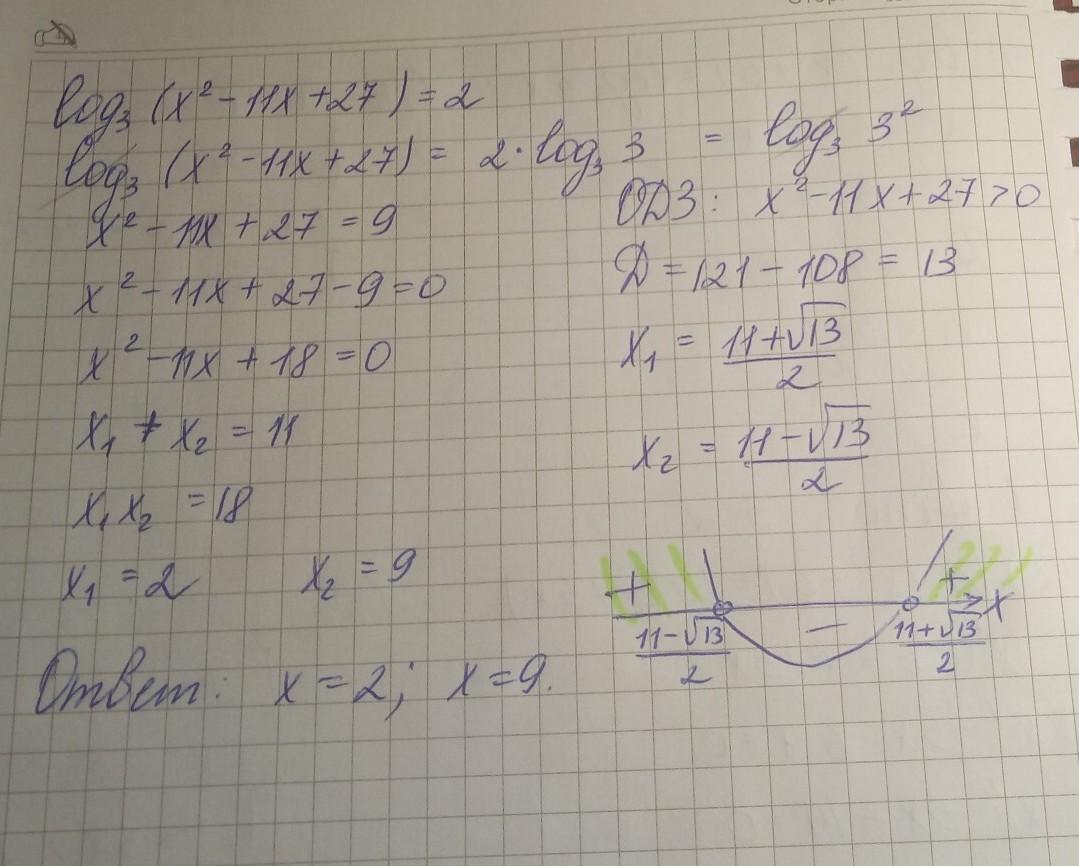 log₃ (x² - 11x + 27) = 2
log₃ (x² - 11x + 27) = 2 · log₃ 3 = log₃ 3²
x² - 11x + 27 = 9
x² - 11x + 27 - 9 = 0
x² - 11x + 18 = 0
x₁ + x₂ = 11
x₁ x₂ = 18
x₁ = 2 x₂ = 9
Ответ: x = 2; x = 9.
ОДЗ: x² - 11x + 27 > 0
D = 121 - 108 = 13
x₁ = (11 + √13)/2
x₂ = (11 - √13)/2
+ - + x
(11 - √13)/2 (11 + √13)/2